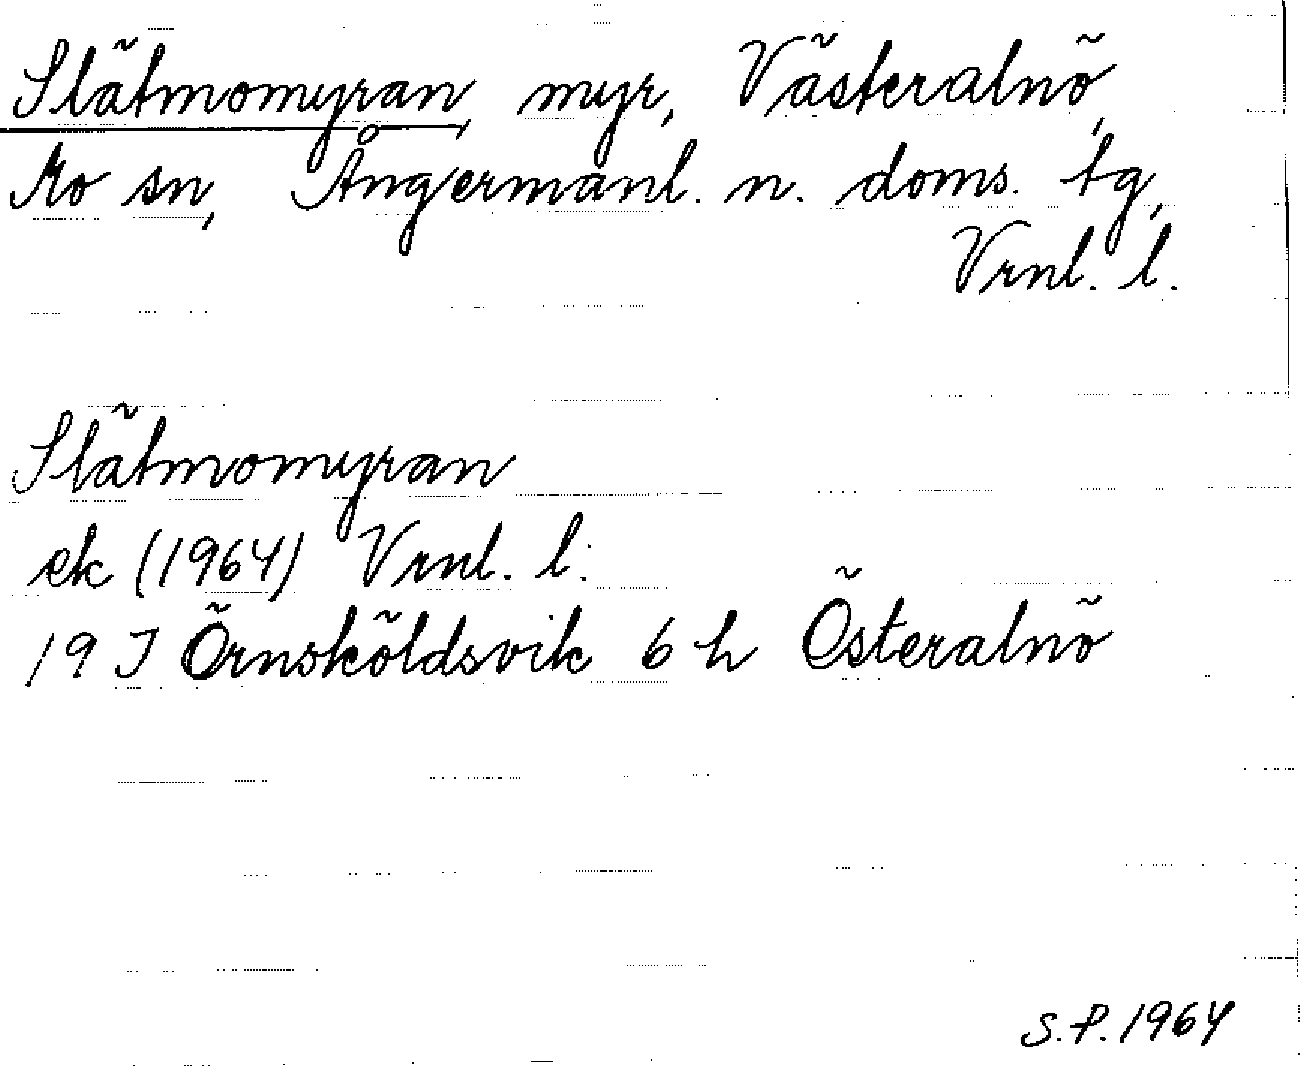 Slätmomyran, myr, Västeralnö,
Mo sn, Ångermanl. n. doms. tg,
Vrnl. l.
Slätmomyran
ek (1964) Vrnl. l.
19 J Örnsköldsvik 6 h Österalnö
S.P. 1964